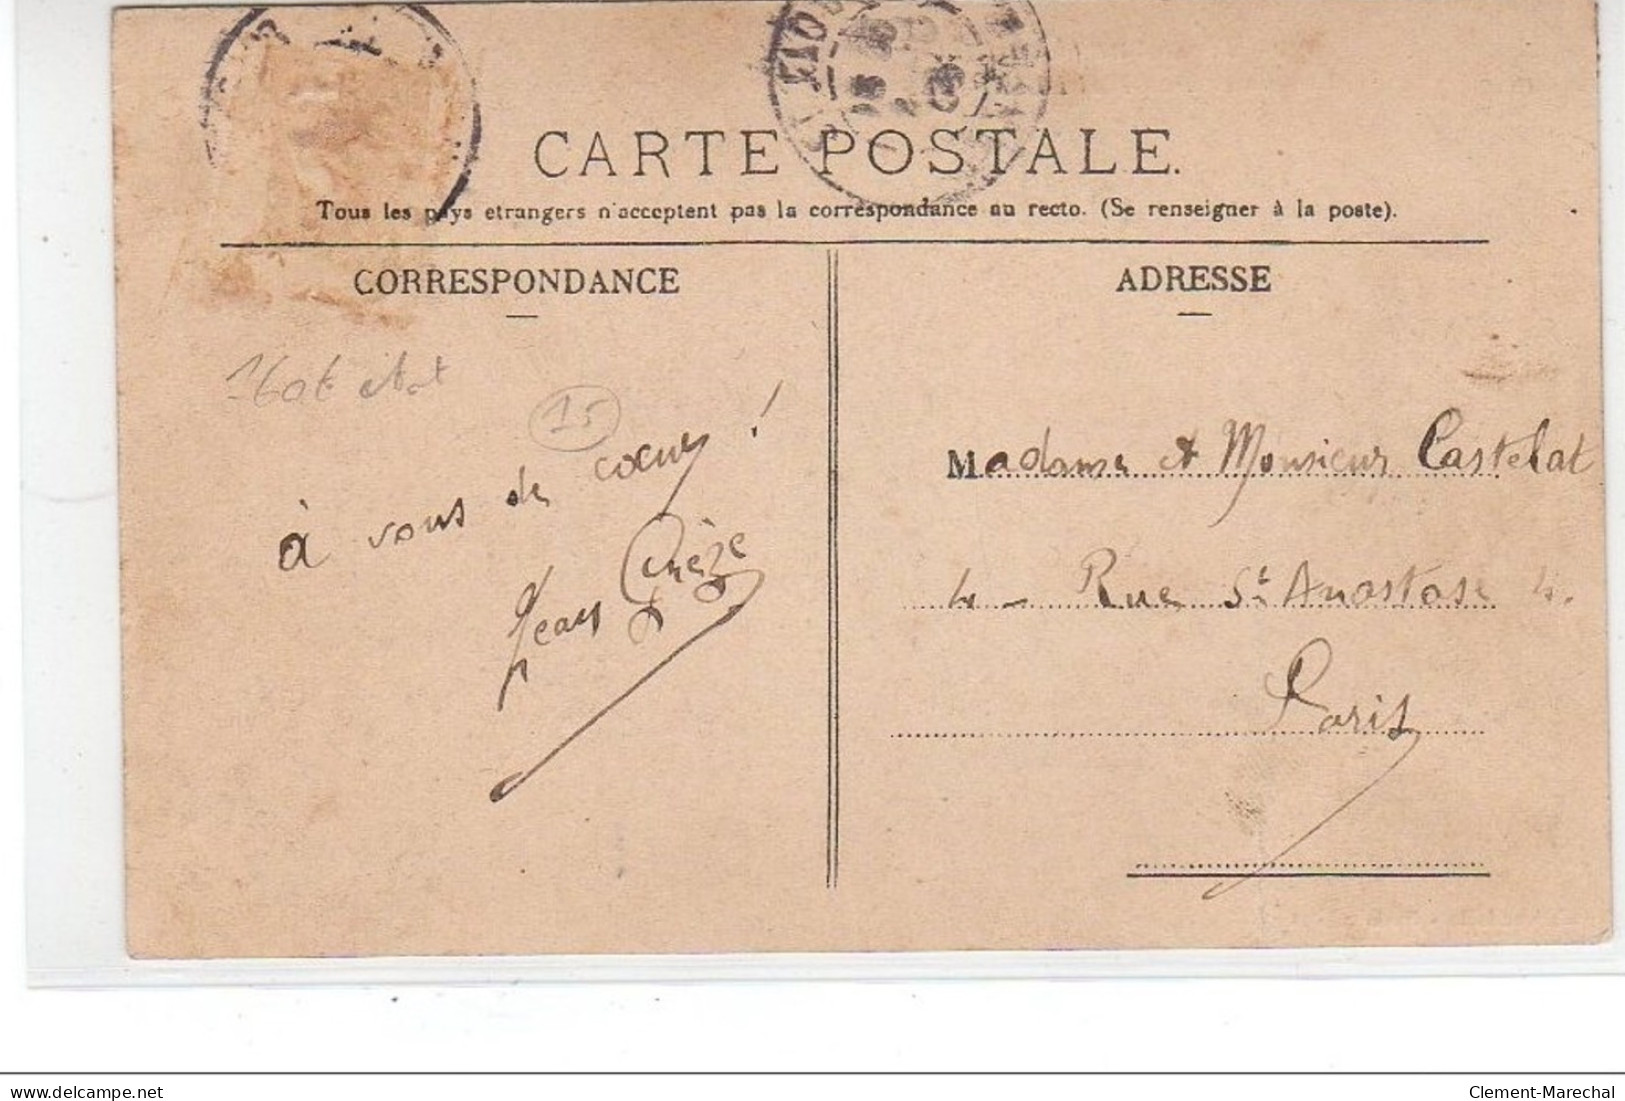 CARTE POSTALE.
Tous les pays etrangers n'acceptent pas la correspondance au recto. (Se renseigner à la poste).
CORRESPONDANCE
ADRESSE
15
à vous de cœur !
Jean
Madame et Monsieur Castelat
4 - Rue St Anastase 4.
Paris
delcampe.net
Clement-Marechal